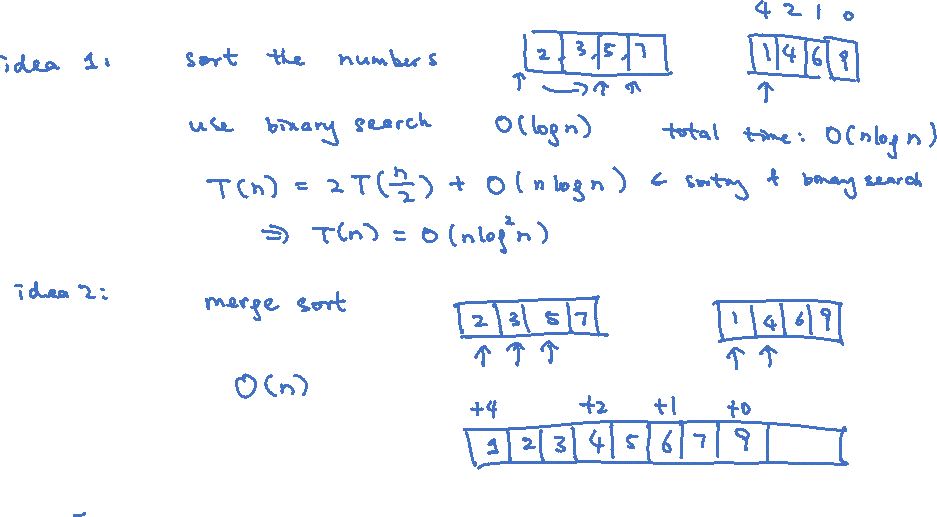 4 2 1 0
idea 1: sort the numbers 2 3 5 7 1 4 6 9
use binary search O(log n) total time: O(n log n)
T(n) = 2T(n/2) + O(n log n) ← sorting & binary search
⇒ T(n) = O(n log² n)
idea 2: merge sort 2 3 5 7 1 4 6 9
O(n)
+4 +2 +1 +0
1 2 3 4 5 6 7 9